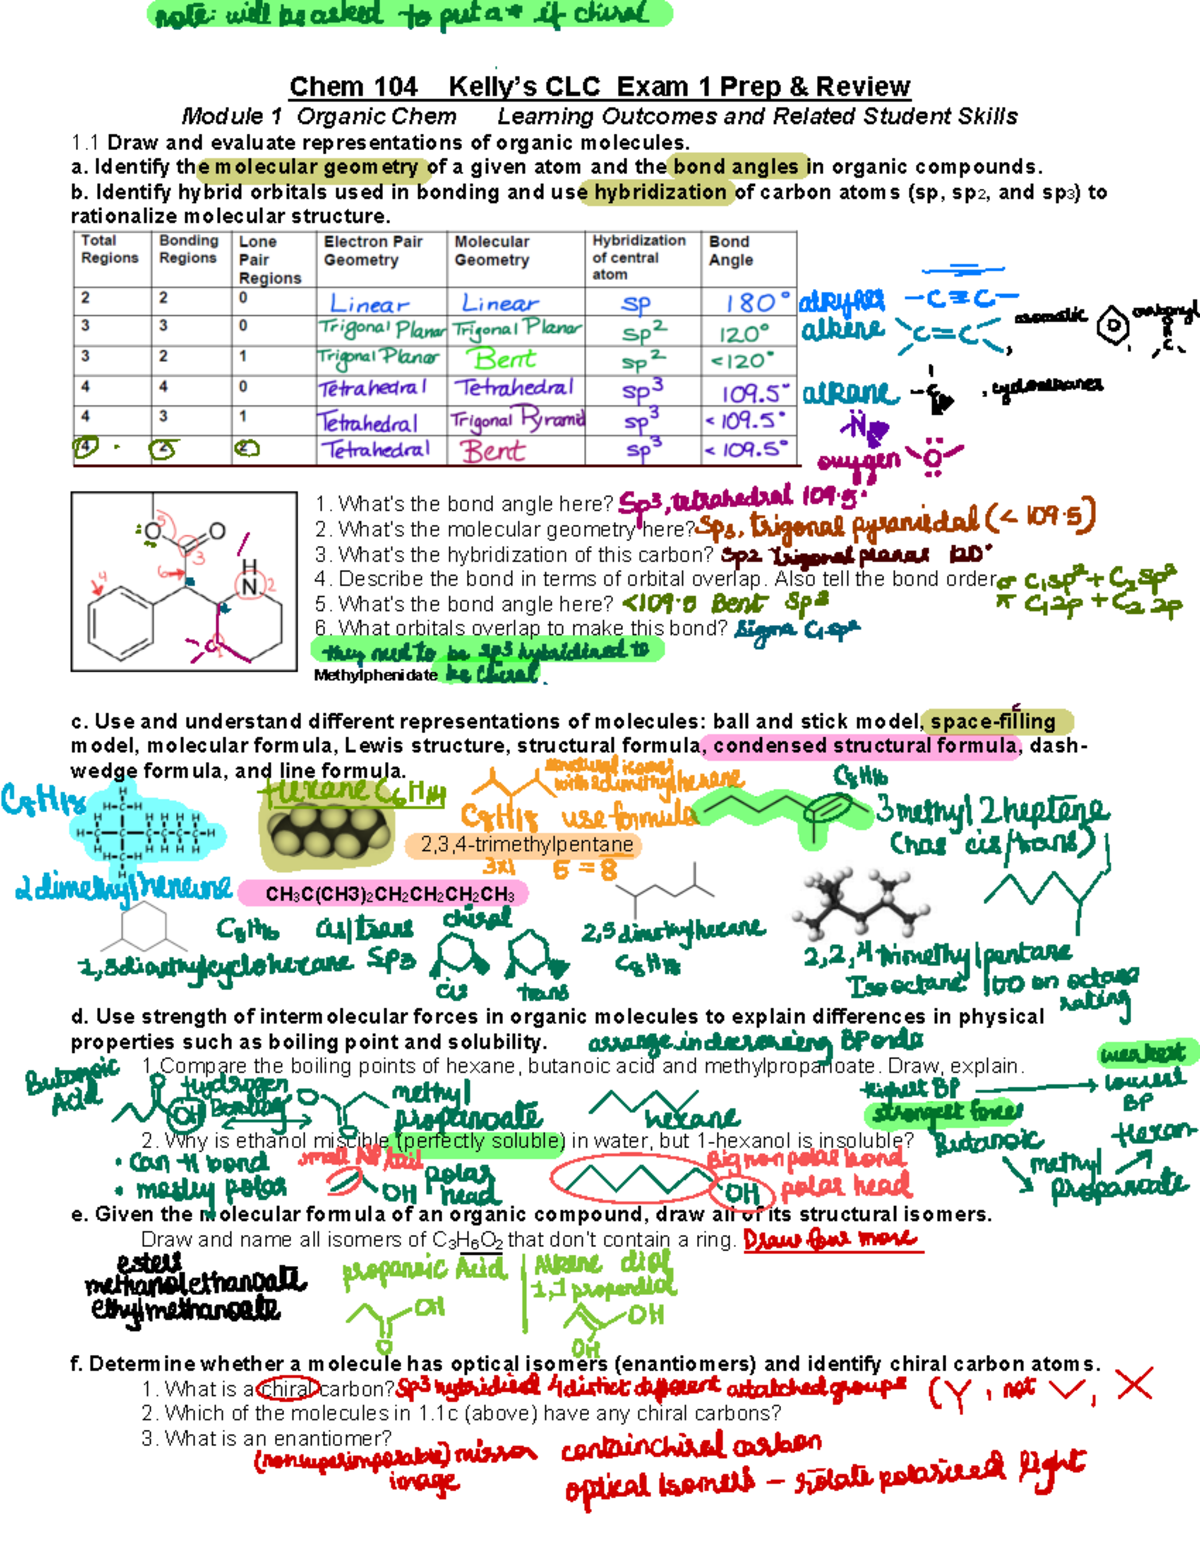 note: will be asked to put a * if chiral
Chem 104 Kelly's CLC Exam 1 Prep & Review
Module 1 Organic Chem Learning Outcomes and Related Student Skills
1.1 Draw and evaluate representations of organic molecules.
a. Identify the molecular geometry of a given atom and the bond angles in organic compounds.
b. Identify hybrid orbitals used in bonding and use hybridization of carbon atoms (sp, sp2, and sp3) to
rationalize molecular structure.
Total Regions Bonding Regions Lone Pair Regions Electron Pair Geometry Molecular Geometry Hybridization of central atom Bond Angle
2 2 0 Linear Linear sp 180° alkynes -C≡C-
3 3 0 Trigonal Planar Trigonal Planar sp2 120° alkene C=C, aromatic carbonyl
3 2 1 Trigonal Planar Bent sp2 <120°
4 4 0 Tetrahedral Tetrahedral sp3 109.5° alkane -C, cycloalkanes
4 3 1 Tetrahedral Trigonal Pyramid sp3 < 109.5° N
4 2 2 Tetrahedral Bent sp3 < 109.5° oxygen O
1. What's the bond angle here? Sp3, tetrahedral 109.5°
2. What's the molecular geometry here? Sp3, trigonal pyramidal (< 109.5)
3. What's the hybridization of this carbon? Sp2 Trigonal planar 120°
4. Describe the bond in terms of orbital overlap. Also tell the bond order. σ C1sp2 + C2sp2
π C12p + C2 2p
5. What's the bond angle here? <109.5 Bent Sp3
6. What orbitals overlap to make this bond? Sigma C1sp2
they need to be sp3 hybridized to
Methylphenidate be chiral.
O 5 O 3 6 4 H N 2 C 1
c. Use and understand different representations of molecules: ball and stick model, space-filling
model, molecular formula, Lewis structure, structural formula, condensed structural formula, dash-
wedge formula, and line formula.
C8H18
Hexane C6H14
structural isomer
with 2 dimethylhexane
C8H18 use formula
C8H16
3 methyl 2 heptene
(has cis/trans)
2,3,4-trimethylpentane
3x1 5 = 8
2 dimethylhexane
CH3C(CH3)2CH2CH2CH2CH3
C8H16 cis/trans
Sp3
chiral
cis trans
1,3 dimethylcyclohexane
2,5 dimethylhexane
C8H18
2,2,4 trimethylpentane
Isooctane 100 on octane
rating
d. Use strength of intermolecular forces in organic molecules to explain differences in physical
properties such as boiling point and solubility. arrange in decreasing BP order
1 Compare the boiling points of hexane, butanoic acid and methylpropanoate. Draw, explain.
Butanoic
Acid
O OH
Hydrogen
Bonding
O O
methyl
propanoate
hexane
weakest
highest BP lowest
BP
strongest forces
Butanoic
methyl
propanoate
Hexan
2. Why is ethanol miscible (perfectly soluble) in water, but 1-hexanol is insoluble?
• Can H bond
• mostly polar
small NP tail
OH
polar
head
OH
Big nonpolar bond
polar head
e. Given the molecular formula of an organic compound, draw all of its structural isomers.
Draw and name all isomers of C3H6O2 that don't contain a ring. Draw four more
esters
methanolethanoate
ethylmethanoate
propanoic Acid
OH
O
Alkene diol
1,1 propendiol
OH
OH
f. Determine whether a molecule has optical isomers (enantiomers) and identify chiral carbon atoms.
1. What is a chiral carbon? Sp3 hybridized 4 distict different attatched groups (Y, not V, X
2. Which of the molecules in 1.1c (above) have any chiral carbons?
3. What is an enantiomer?
(nonsuperimposable) mirror
image
contain chiral carbon
optical isomers – rotate polarized light